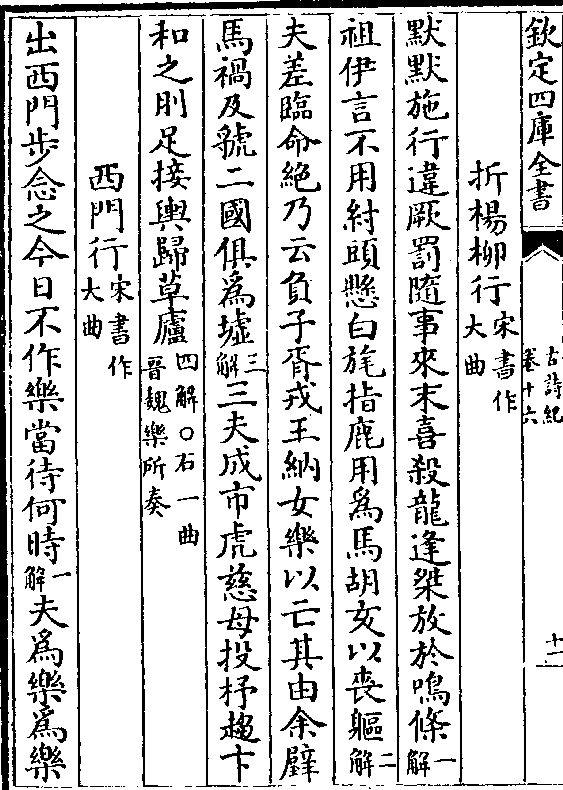 欽定四庫全書 古詩紀卷十六 十一
折楊柳行宋書作大曲
默默施行違厥罰隨事來末喜殺龍逢桀放於鳴條一解
祖伊言不用紂頭懸白旄指鹿用爲馬胡亥以喪軀二解
夫差臨命絶乃云負子胥戎王納女樂以亡其由余璧
馬禍及虢二國俱爲墟三解三夫成市虎慈母投杼趨卞
和之刖足接輿歸草廬四解○右一曲晉魏樂所奏
西門行宋書作大曲
出西門步念之今日不作樂當待何時一解夫爲樂爲樂